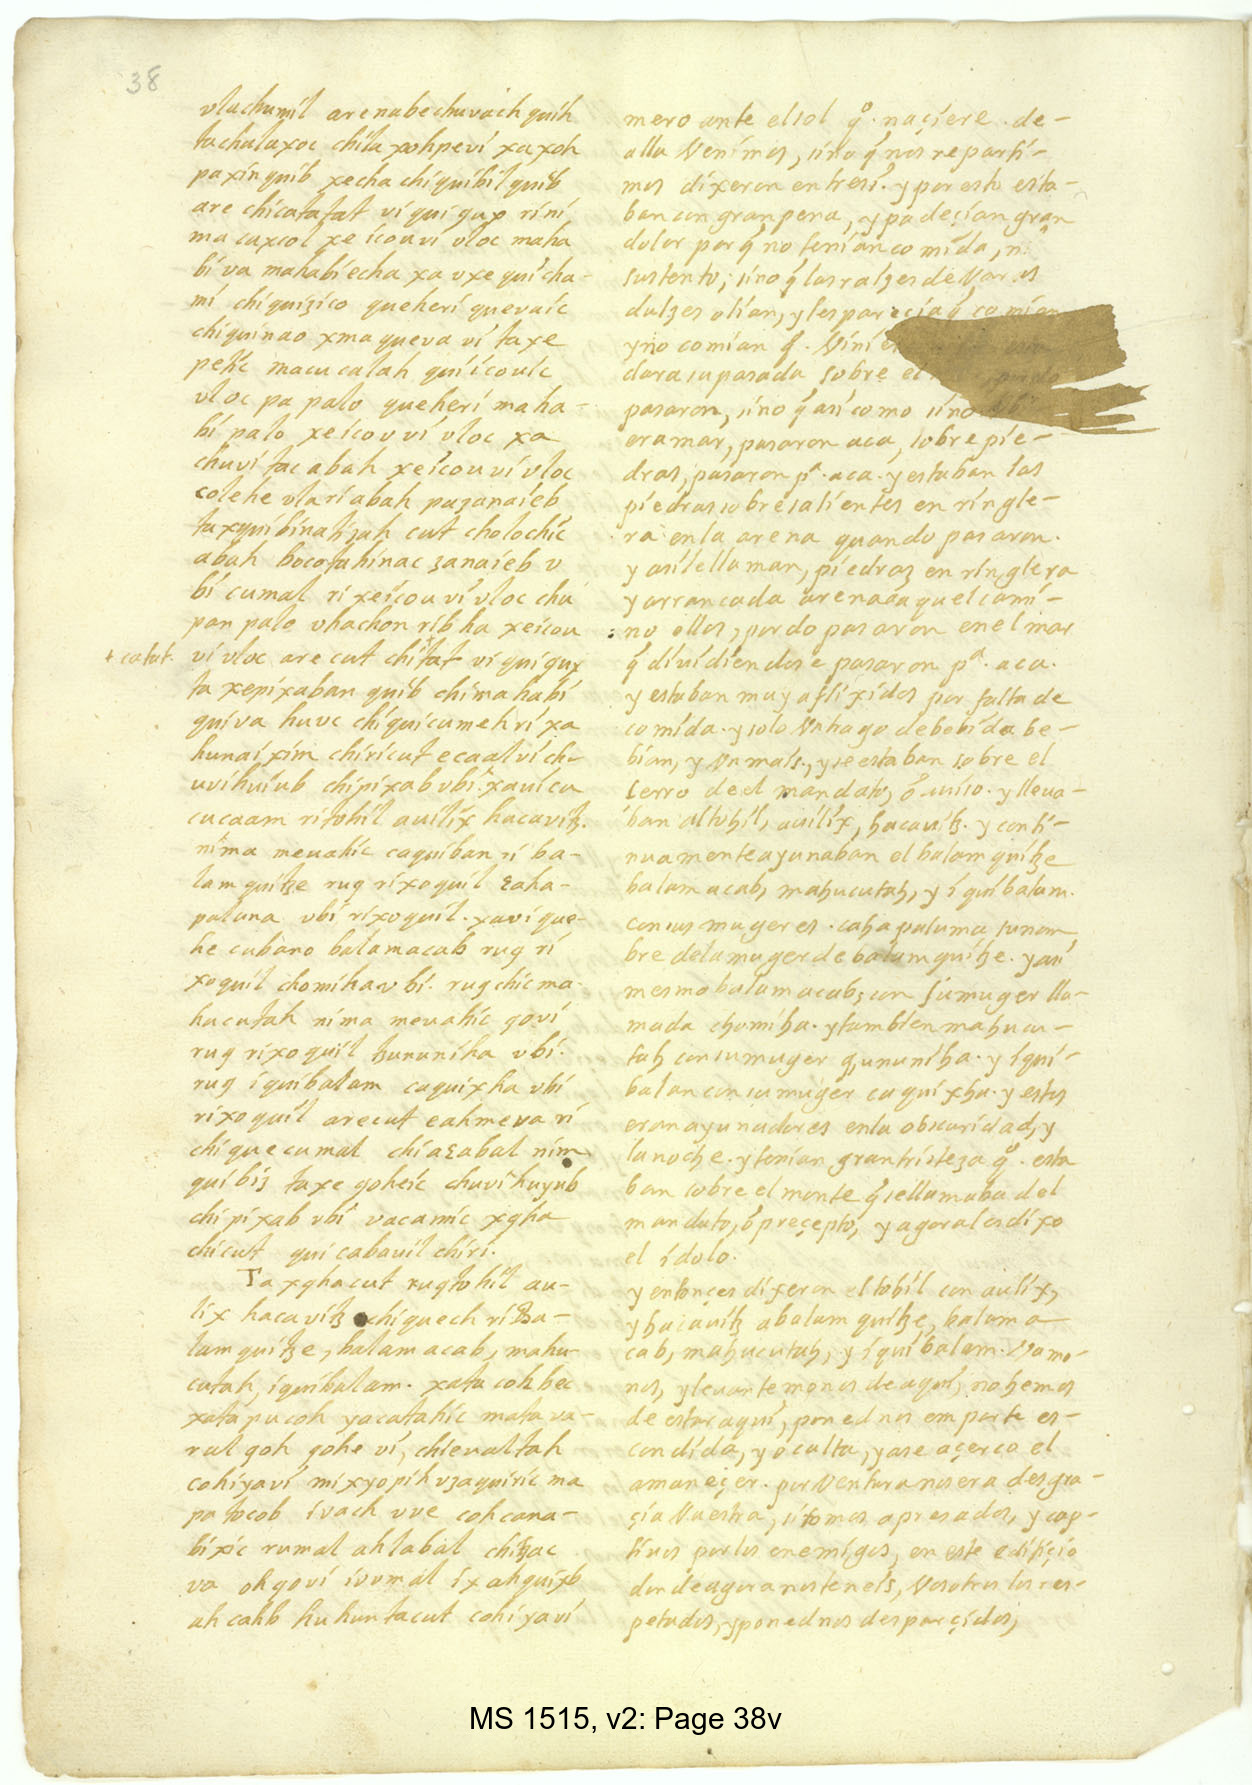 38
vlachumil arenabechuvach quih
tachalaxoc chila xohpevi xaxoh
paxinquib xecha chiquibil quib
are chicatatat vi qui qux rini
ma cuxcol xe icouvi vloc maha
bi va mahabi echa xa vxe qui cha-
mi chiquizico queheri quevaic
chiquinao xmaqueva vi taxe
petic macucalah qui icoulc
vloc pa palo queheri maha-
bi palo xeicov vi vloc xa
chuvi tac abah xeicou vi vloc
colehe vlari abah pazanaieb
taxquibinatizah cut cholochic
abah bocotahinac zanaieb v
bi cumal ri xeicou vi vloc cha
pan palo vhachon rib ha xeicou
+ catat. vi vloc are cut chitat vi qui qux
ta xepixaban quib chi mahabi
quiva huvc chiquicumeh ri xa
hunaixim chiricut ecaal vi ch-
uvihuiub chipixab vbi. xavicu
cucaam ri tohil avilix hacavitz.
nima mevahic caquiban ri ba-
lam quitze ruq rixoquil caha-
paluna vbi rixoquil. xavi que-
he cubano balamacab ruq ri
xoquil chomiha vbi. ruq chic ma-
hucutah nima mevahic qovi
ruq rixoquil tzununiha vbi.
ruq iquibalam caquixha vbi
rixoquil arecut eahmeva ri
chiquecumal chiacabal nim
qui biz taxe qoheic chuvi huyub
chi pixab vbi vacamic xqha
chicut qui cabauil chiri.
Ta xqhacut ruq tohil au-
lix hacavitz chiquech ri Ba-
lam quitze, balam acab, mahu-
cutah, iquibalam. xata coh bec
xata pucoh yacatahic mata va-
ral qoh qohe vi, chievaltah
cohiyavi mixyopih vzaquiric ma
pa tocob ivach vve cohcana-
bixic rumal ahlabal chitzac
va oh qovi ivumal ix ahquixb
ah cahb huhuntacut cohiyavi
mero ante el sol qo. naçiere. de-
alla Venimos, sino q nos reparti-
mos dixeron entresi. y por esto esta-
ban con gran pena, y padeçian gran
dolor porq no tenian comida, ni
sustento; sino q las raizes de Varas
dulzes olian, y les pareçia q comian
y no comian q. Vini
dara su pasada sobre el
pasaron, sino q asi como sino
era mar, pasaron aca, sobre pie-
dras, pasaron pa. aca. y estaban las
piedras sobresalientes en ringle-
ra en la arena quando pasaron.
y asi le llaman, piedraz en ringlera
y arrancada arena a aquel cami-
no ellos, por do pasaron en el mar
q dividiendose pasaron pa. aca.
y estaban muy aflixidos por falta de
comida. y solo Vn trago de bebida be-
bian, y Vn mais, y se estaban sobre el
serro de el mandato, o aviso. y lleva-
ban al tohil, avilix, hacavitz. y conti-
nuamente ayunaban el balam quitze
balam acab, mahucutah, y iquibalam.
con sus mugeres. caha paluma su nom
bre de la muger de balam quitze. y asi
mesmo balam acab, con su muger lla-
mada chomiha. y tambien mahucu-
tah con su muger q,ununiha. y iqui-
balan con su muger caquixha. y estos
eran ayunadores en la obscuridad, y
la noche. y tenian gran tristeza qo. esta
ban sobre el monte q se llamaba del
mandato, o preçepto, y agora les dixo
el idolo.
y entonçes dixeron el tohil con avlix,
y hacavitz a balam quitze, balam a
cab, mahucutah, y iquibalam. Vamo-
nos, y levantemonos de aqui, no hemos
de estar aqui, ponednos em parte es-
condida, y oculta, ya se açerca el
amaneçer. por Ventura no sera desgra-
çia Vuestra, si fomos apresados, y cap-
tivos por los enemigos, en este edifiçio
donde agora nos teneis, Vosotros los res-
petados, y ponednos desparçidos,
MS 1515, v2: Page 38v